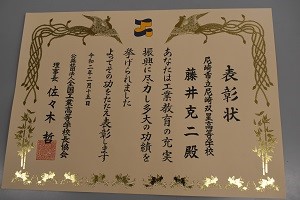 表彰状
尼崎市立尼崎双星高等学校
藤井克二殿
あなたは工業教育の充実
振興に尽力し多大の功績を
挙げられました
よってその功をたたえ表彰します
令和二年二月十五日
公益社団法人全国工業高等学校長協会
理事長佐々木哲